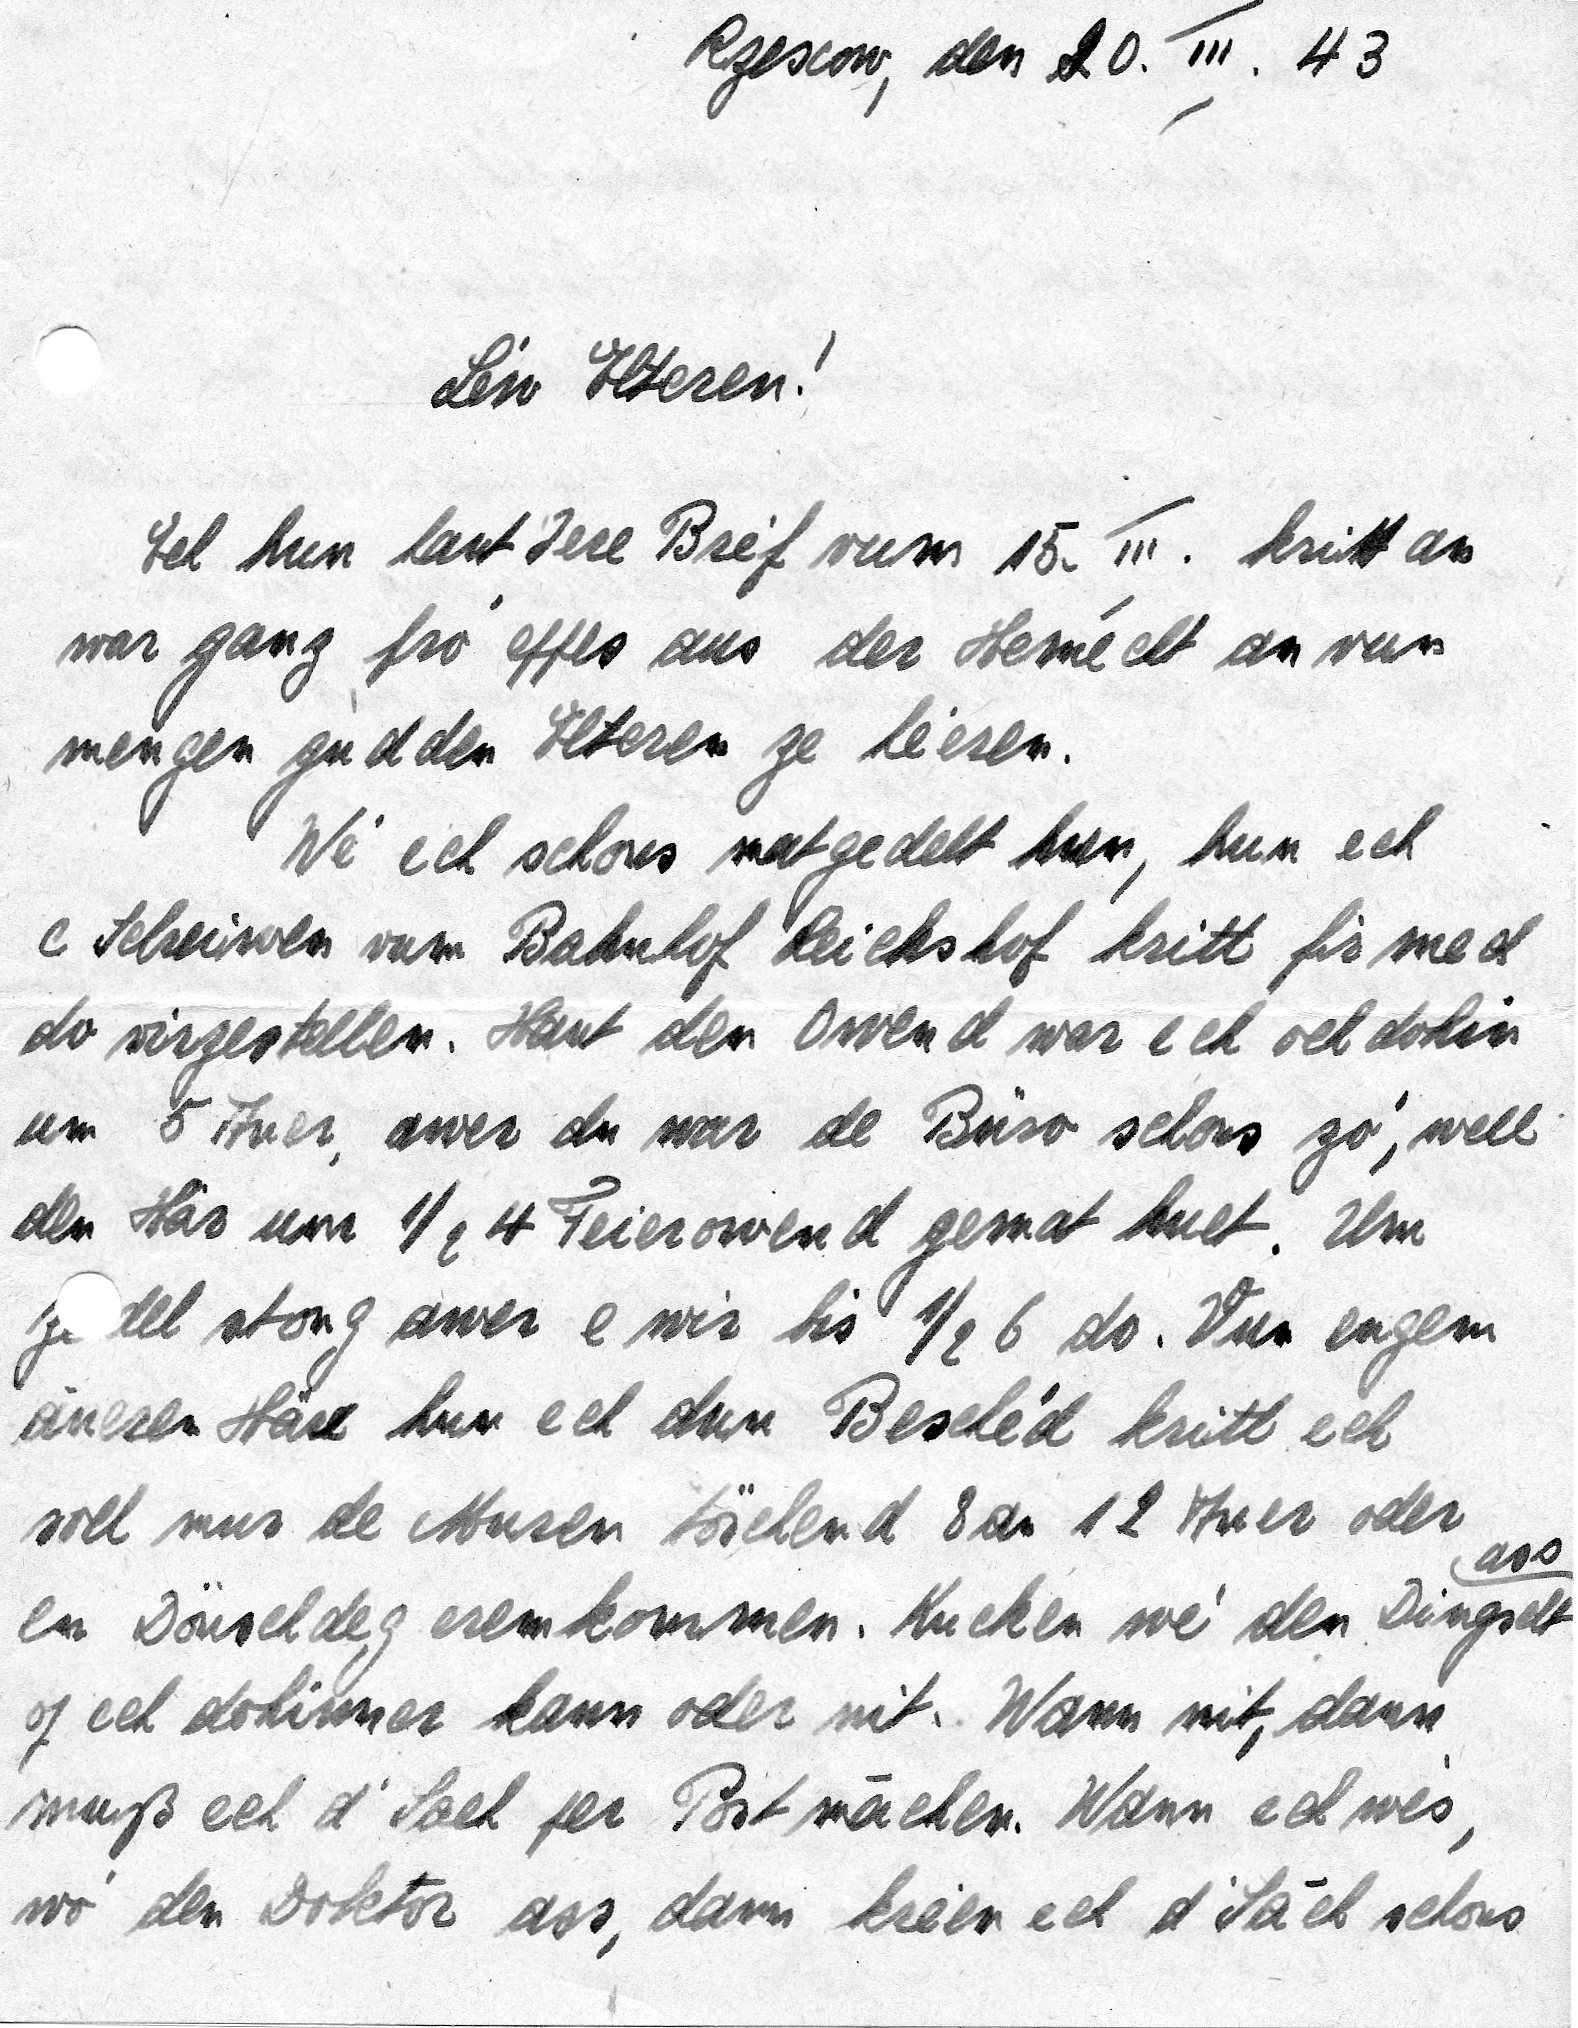 Rzescow, den 20. III. 43
Léiw Elteren!
Ech hun haut Iere Bréf vum 15. III. kritt an
war ganz fro' eppes aus der Hemécht an vun
mengen gudden Elteren ze liésen.
Wé ech schons matgedelt hun, hun ech
e Schreiwen vum Bahnhof Reichshof kritt fir mech
do virzestellen. Haut den Owend war ech och dohin
um 5 Auer, awer du war de Büro schons zó, well
den Här um 1/2 4 Feierowend gemat huet. Um
del stong awer e wir bis 1/2 6 do. Vun engem
äneren Här hun ech dun Beschéd kritt ech
soll mur de Muren töschend 8 an 12 Auer oder
en Dönschdeg eremkommen. Kucken wé den Dingscht ass
of ech dohinner kann oder nit. Wann nit, dann
muß ech d'Sach per Post māchen. Wann ech wés,
wó den Doktor ass, dann kréien ech d'Sāch schons